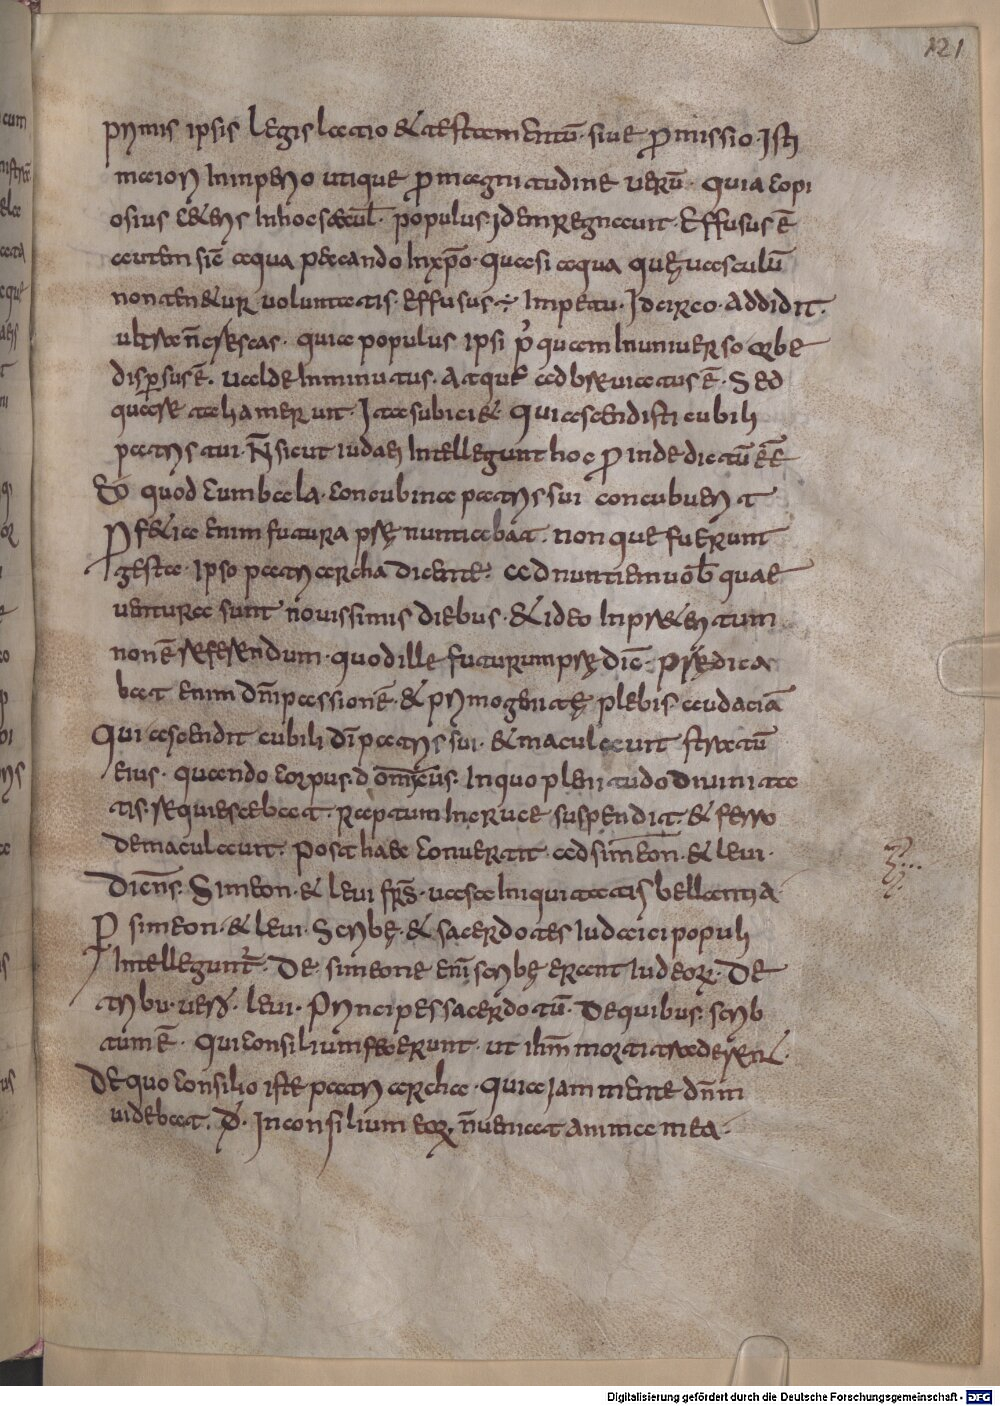 121
primis ipsis legislatio & testamentū· siue ꝓmissio· Isti
maiori inimperio utique ꝓmagnitudine uerū· quia copi
osius c&eris inhoc saecul̄· populus· Idem regnauit· Effusus ē
autem sic̄ aqua peccando inxp̄o· quasi aqua que uasculū
non ten&ur uoluntatis· effusus ÷ impetu· Idcirco· addidit·
ultra n̄ crescas· quia populus ipsi p̓ quam inuniuerso orbe
dispersus ē· ualde inminutus· atque adbreuiatus ē· Sed
quare ita hameruit· Ita subicic̄· qui ascendisti cubili
patris tui· N̄ sicut iudaei intellegunt hoc ꝓinde dictū eē
eo quod cum bala· concubina patris sui concubuerit
Prof&ica enim futura pre nuntiabat· non que fuerunt
gesta· ipso patriarcha dicente· adnuntiem uob̄ quae
uentura sunt nouissimis diebus· & ideo inpr&eritum
non ē referendum· quod ille futurum prędic̄· prędica
bat enim dn̄i passionē· & primogenitę plebis audaciā
qui ascendit cubili dī patris sui· & maculauit stratū
eius· quando corpus dominicus· inquo plenitudo diuinita
tis· requiescebat· raptum incruce suspendit· & ferro
demaculauit· Post haec conuertit ad simeon· & leui·
dicens· Simeon· & leui frs̄· uasa iniquitatis bellantia·
P simeon· & leui· Scribę· & sacerdotes Iudaici populi
Intellegunt̓· De simeone enī scribę erant iudeorꝝ· De
tribu· uero· leui· Principes sacerdotū· De quibus· scrib
tum ē· qui consilium fecerunt· ut ihm̄ morti traderent·
De quo consilio iste patriarcha· quia jam mente dn̄m
uidebat· đ· In consilium eorꝝ· n̄ ueniat anima mea·
Digitalisierung gefördert durch die Deutsche Forschungsgemeinschaft - DFG